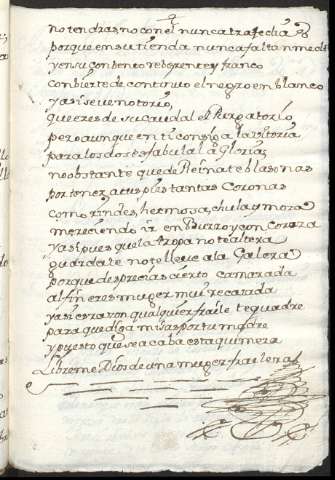 no tendras no con el nunca trajedia
porque en su tienda nunca faltan medi
y en su conbento reberente y franco
conbierte de continuo el negro en blanco
y asi se ve notorio,
que eres de su caudal el Purgatorio
pero aunque en ti consiga la vitoria
para los dos es fabula la Gloria;
no obstante que de Reina te blasonas
por tener a tus pies tantas Coronas
como rindes, hermosa, chula y mora
mereciendo ir en Burro y con Coroza
y asi pues que la tropa no te altera
guardate no te lleve a la Galera
porque desprecias cierto camarada
al fin eres muger mui recatada
y asi cara con qualquier fraile te quadre
para que diga misas por tu madre
y puesto que se acaba esta quimera
Libreme Dios de una muger frailera